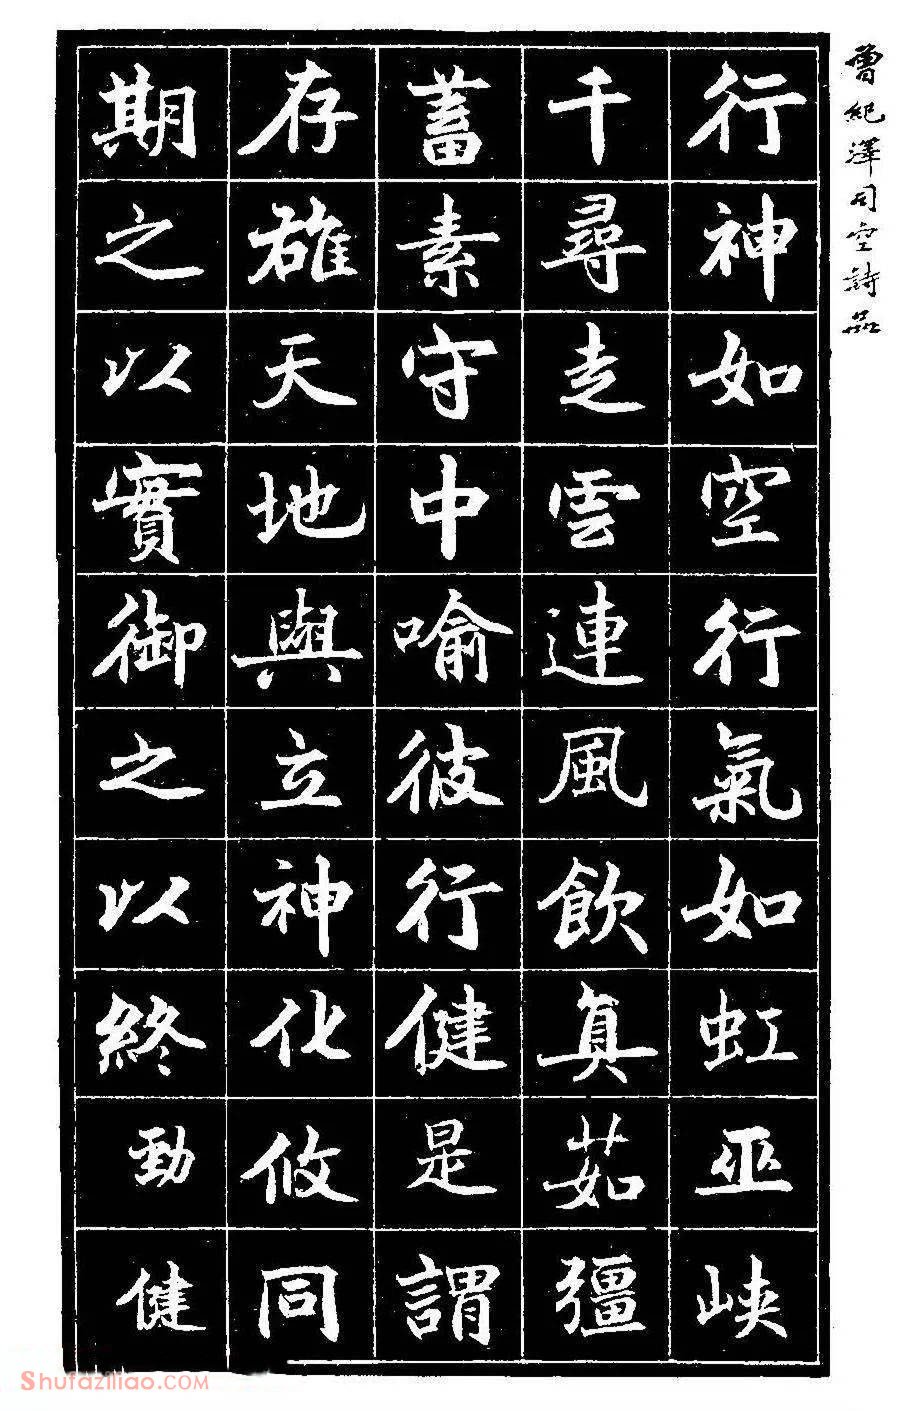 曾紀澤司空詩品
行神如空行氣如虹巫峽
千尋走雲連風飲真茹彊
蓄素守中喻彼行健是謂
存雄天地與立神化攸同
期之以實御之以終勁健
Shufaziliao.COM